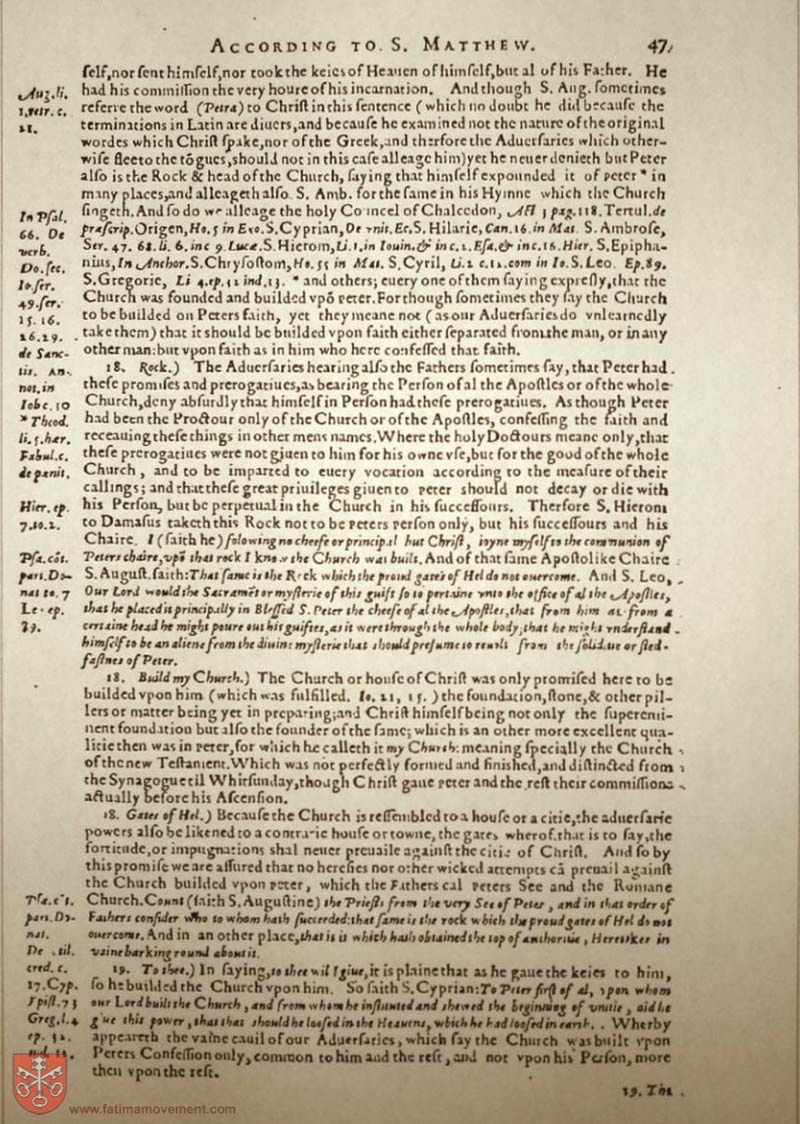 ACCORDING TO S. MATTHEW. 47
ſelf, nor ſent himſelf, nor tooke the keies of Heauen of himſelf, but al of his Father. He
Aug. li.
had his commiſſion the very houre of his incarnation. And though S. Aug. ſometimes
1. retr. c.
referre the word (Petra) to Chriſt in this ſentence (which no doubt he did becauſe the
21.
terminations in Latin are diuers, and becauſe he examined not the nature of the original
wordes which Chriſt ſpake, nor of the Greek, and therfore the Aduerſaries which other-
wiſe flee to the tōgues, ſhould not in this caſe alleage him) yet he neuer denieth but Peter
alſo is the Rock & head of the Church, ſaying that himſelf expounded it of peter * in
many places, and alleageth alſo S. Amb. for the ſame in his Hymne which the Church
In Pſal.
ſingeth. And ſo do we alleage the holy Councel of Chalcedon, Act 3 pag. 118. Tertul. de
66. De
præſcrip. Origen, Ho. 5 in Exo. S. Cyprian, De vnit. Ec. S. Hilarie, Can. 16. in Mat. S. Ambroſe,
verb.
Ser. 47. 68. li. 6. inc 9. Lucæ. S. Hierom, Li. 1. in Iouin. & in c. 2. Eſa. & in c. 16. Hier. S. Epipha-
Do. ſec.
nius, In Anchor. S. Chryſoſtom, Ho. 55 in Mat. S. Cyril, Li. 2 c. 12. com in Io. S. Leo. Ep. 89.
Io. ſer.
S. Gregorie, Li 4. ep. 32 ind. 13. * and others; euery one of them ſaying expreſly, that the
49. ſer.
Church was founded and builded vpō peter. For though ſometimes they ſay the Church
15. 16.
to be builded on Peters faith, yet they meane not (as our Aduerſaries do vnlearnedly
26. 29.
take them) that it ſhould be builded vpon faith either ſeparated from the man, or in any
de Sanc-
other man: but vpon faith as in him who here confeſſed that faith.
tis. An-
18. Rock.) The Aduerſaries hearing alſo the Fathers ſometimes ſay, that Peter had
not. in
theſe promiſes and prerogatiues, as bearing the Perſon of al the Apoſtles or of the whole
Iob c. 30
Church, deny abſurdly that himſelf in Perſon had theſe prerogatiues. As though Peter
* Theod.
had been the Proctour only of the Church or of the Apoſtles, confeſſing the faith and
li. 5. hær.
receauing theſe things in other mens names. Where the holy Doctours meane only, that
Fabul. c.
theſe prerogatiues were not giuen to him for his owne vſe, but for the good of the whole
de pœnit.
Church, and to be imparted to euery vocation according to the meaſure of their
callings; and that theſe great priuileges giuen to peter ſhould not decay or die with
Hier. ep.
his Perſon, but be perpetual in the Church in his ſucceſſours. Therfore S. Hierom
7. 10. 2.
to Damaſus taketh this Rock not to be peters perſon only, but his ſucceſſours and his
Chaire. I (ſaith he) folowing no cheefe or principal but Chriſt, ioyne myſelf to the communion of
Pſa. cōt.
Peters chaire, vpō that rock I know the Church was built. And of that ſame Apoſtolike Chaire
part. Do-
S. Auguſt. ſaith: That ſame is the Rock which the proud gates of Hel do not ouercome. And S. Leo,
nat to. 7
Our Lord would the Sacramēt or myſterie of this guift ſo to pertaine vnto the office of al the Apoſtles,
Le. ep.
that he placed it principally in Bleſſed S. Peter the cheefe of al the Apoſtles, that from him as from a
89.
certaine head he might poure out his guiftes, as it were through the whole body; that he might vnderſtand
himſelf to be an aliene from the diuine myſterie that ſhould preſume to reuolt from the ſolidi.ue or ſted-
faſtnes of Peter.
18. Build my Church.) The Church or houſe of Chriſt was only promiſed here to be
builded vpon him (which was fulfilled. Io. 21, 15.) the foundation, ſtone, & other pil-
lers or matter being yet in preparing; and Chriſt himſelf being not only the ſuperemi-
nent foundation but alſo the founder of the ſame; which is an other more excellent qua-
litie then was in peter, for which he calleth it my Church: meaning ſpecially the Church
of the new Teſtament. Which was not perfectly formed and finiſhed, and diſtincted from
the Synagogue til Whitſunday, though Chriſt gaue peter and the reſt their commiſſions
actually before his Aſcenſion.
18. Gates of Hel.) Becauſe the Church is reſſembled to a houſe or a citie, the aduerſarie
powers alſo be likened to a contrarie houſe or towne, the gates wherof, that is to ſay, the
fortitude, or impugnations ſhal neuer preuaile againſt the citie of Chriſt. And ſo by
this promiſe we are aſſured that no hereſies nor other wicked attempts cā preuail againſt
the Church builded vpon peter, which the Fathers cal peters See and the Romane
Pſa. cōt.
Church. Count (ſaith S. Auguſtine) the Prieſts from the very See of Peter, and in that order of
part. Do-
Fathers conſider who to whom hath ſucceeded: that ſame is the rock which the proud gates of Hel do not
nat.
ouercome. And in an other place, that is it which hath obtained the top of authoritie, Heretikes in
De vtil.
vaine barking round about it.
cred. c.
19. To thee.) In ſaying, to thee wil I giue, it is plaine that as he gaue the keies to him,
17. Cyp.
ſo he builded the Church vpon him. So ſaith S. Cyprian: To Peter firſt of al, vpon whom
Epiſt. 73
our Lord built the Church, and from whom he inſtituted and ſhewed the beginning of vnitie, did he
Greg. l. 4
giue this power, that that ſhould be looſed in the Heauens, which he had looſed in earth. Wherby
ep. 32.
appeareth the vaine cauil of our Aduerſaries, which ſay the Church was built vpon
ind. 13.
Peters Confeſſion only, common to him and the reſt, and not vpon his Perſon, more
then vpon the reſt.
19. The
www.fatimamovement.com